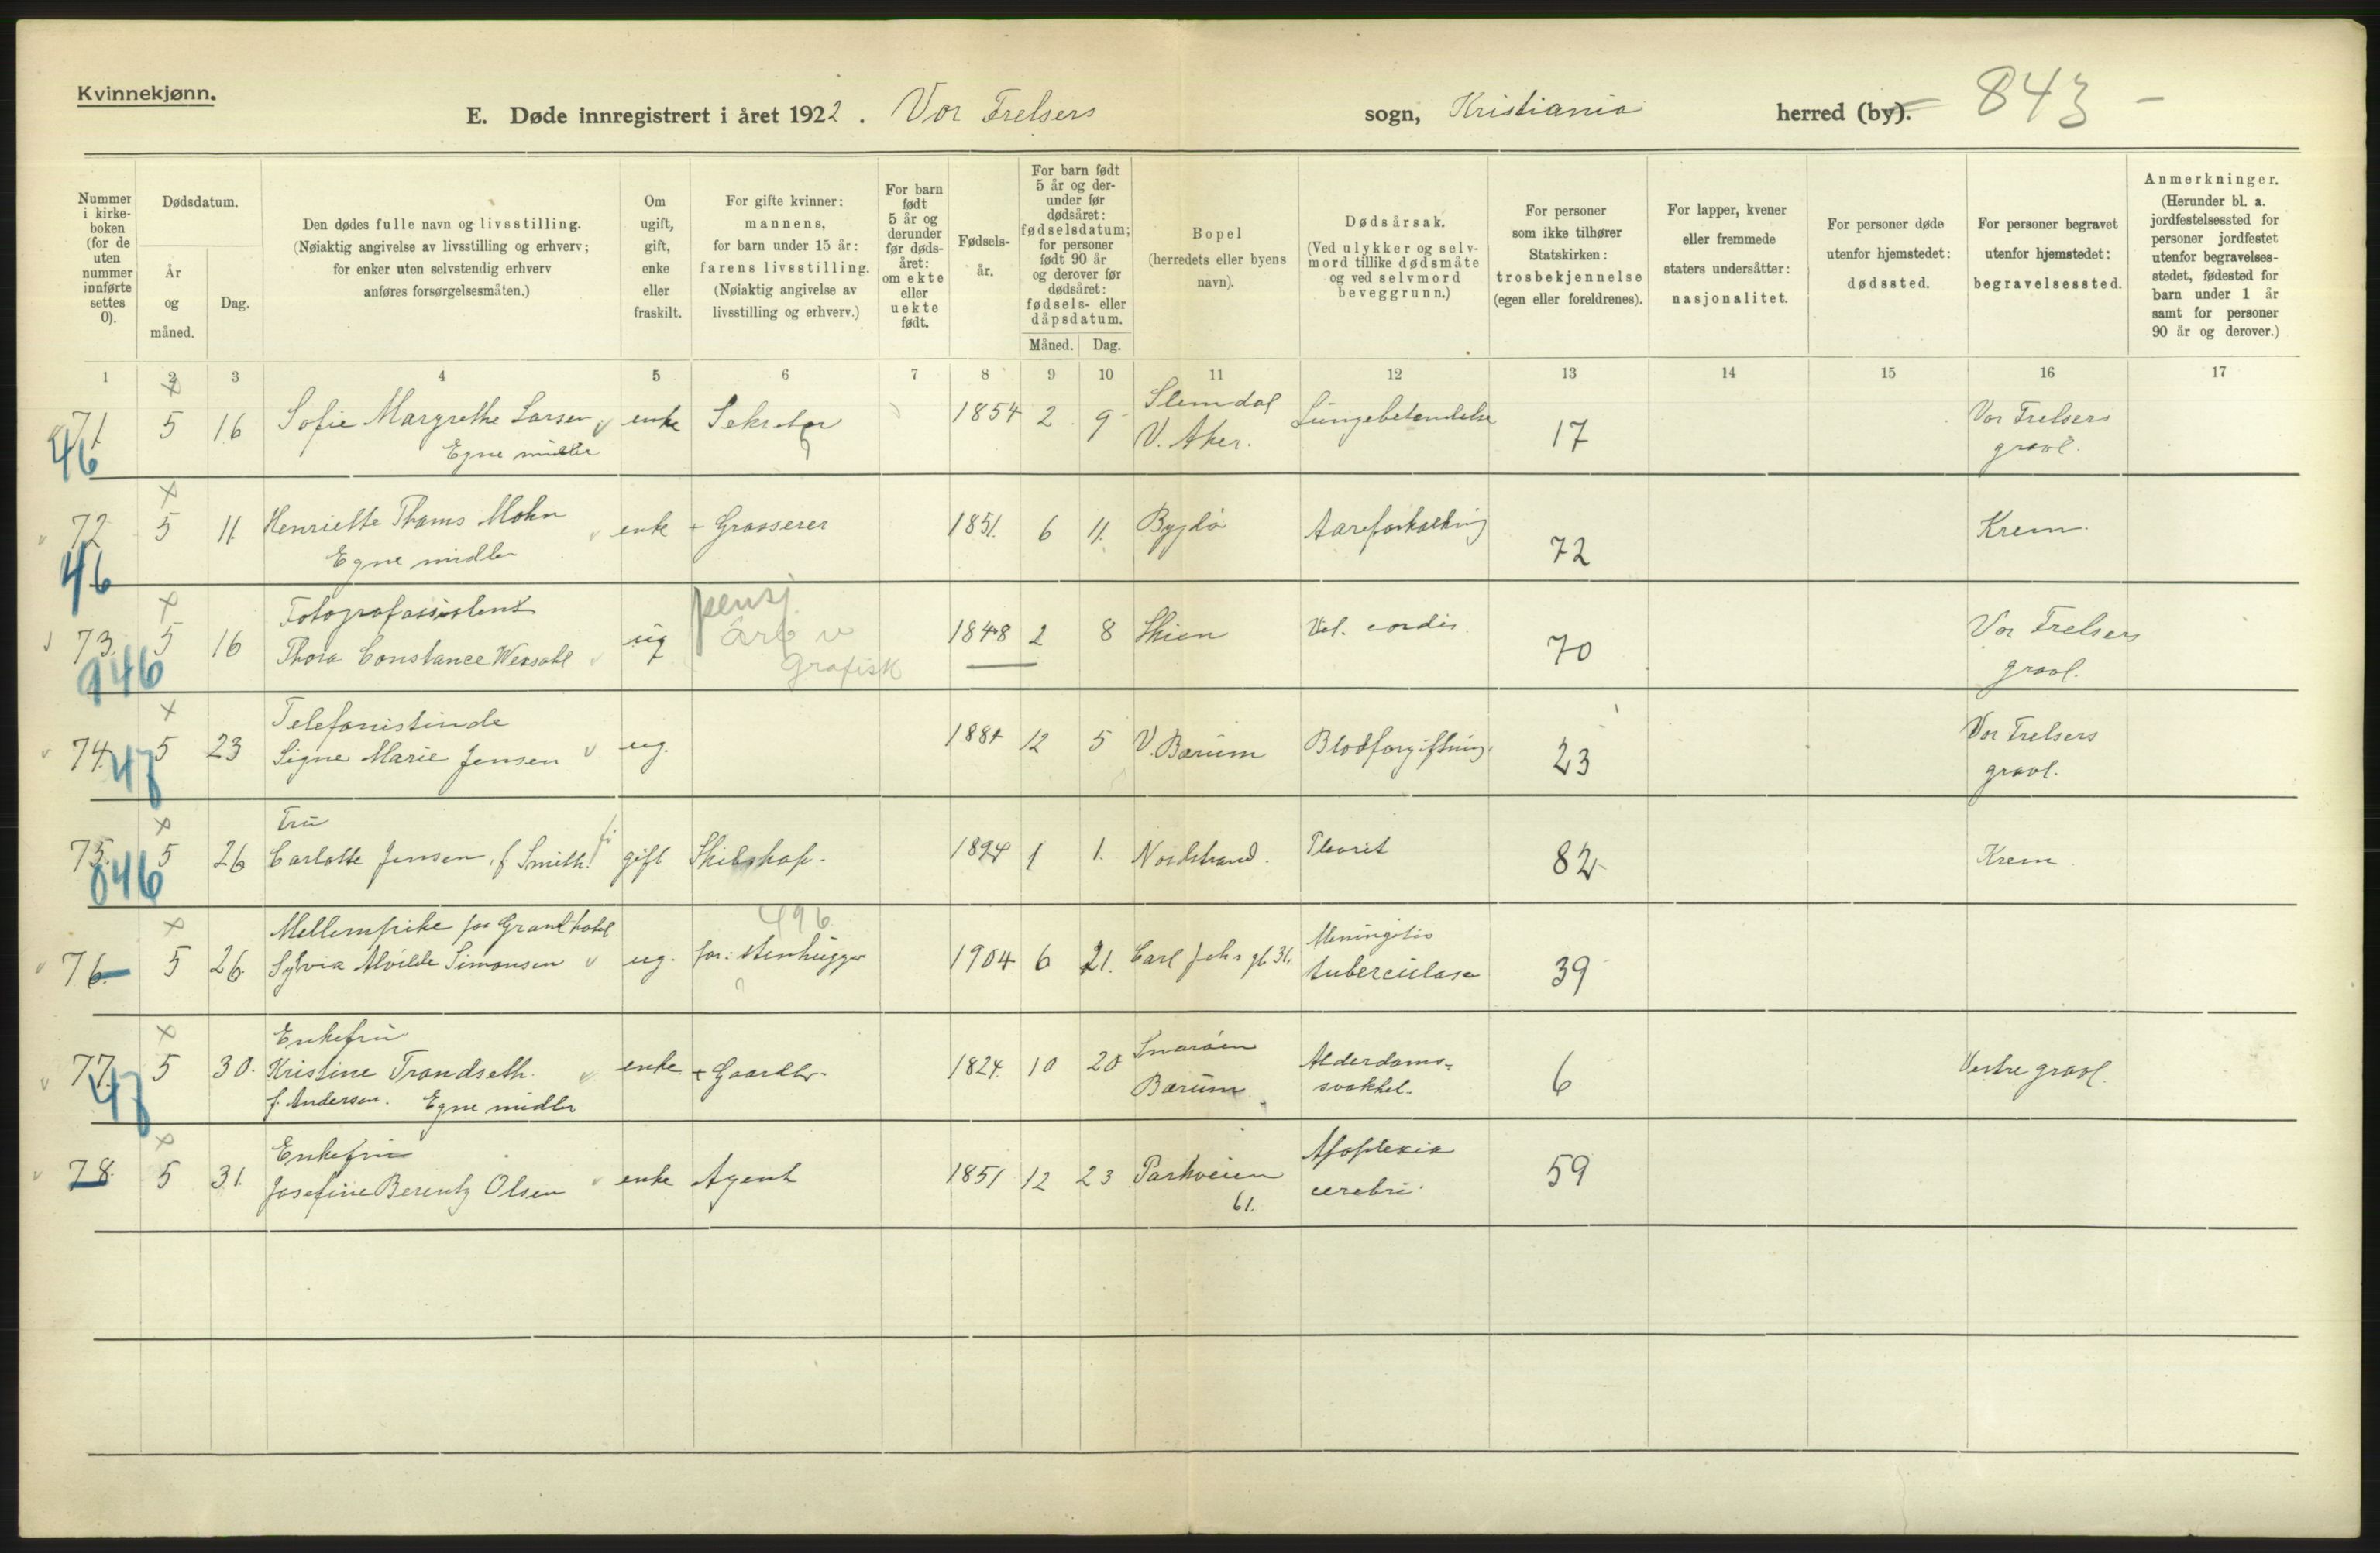 Kvinnekjønn.
E. Døde innregistrert i året 1922. Vor Frelsers sogn, Kristiania herred (by). 843 -
Nummer i kirke-boken (for de uten nummer innførte settes 0).
Dødsdatum.
År og måned.
Dag.
Den dødes fulle navn og livsstilling.
(Nøiaktig angivelse av livsstilling og erhverv;
for enker uten selvstendig erhverv
anføres forsørgelsesmåten.)
Om ugift, gift, enke eller fraskilt.
For gifte kvinner:
mannens,
for barn under 15 år:
farens livsstilling.
(Nøiaktig angivelse av
livsstilling og erhverv.)
For barn født 5 år og derunder før døds-året: om ekte eller uekte født.
Fødsels-år.
For barn født 5 år og der-under før dødsåret: fødselsdatum; for personer født 90 år og derover før dødsåret: fødsels- eller dåpsdatum.
Måned. Dag.
Bopel
(herredets eller byens navn).
Dødsårsak.
(Ved ulykker og selv-
mord tillike dødsmåte
og ved selvmord
beveggrunn.)
For personer
som ikke tilhører
Statskirken:
trosbekjennelse
(egen eller foreldrenes).
For lapper, kvener
eller fremmede
staters undersåtter:
nasjonalitet.
For personer døde
utenfor hjemstedet:
dødssted.
For personer begravet
utenfor hjemstedet:
begravelsessted.
Anmerkninger.
(Herunder bl. a.
jordfestelsessted for
personer jordfestet
utenfor begravelses-
stedet, fødested for
barn under 1 år
samt for personer
90 år og derover.)
1 2 3 4 5 6 7 8 9 10 11 12 13 14 15 16 17
71. 5 16 Sofie Margrethe Larsen enke Sekretær 1854 2 9 Slemdal Lungebetendelse 17 Vor Frelsers
46 Egne midler V. Aker. gravl.
72 5 11. Henriette Thams Mohn enke + Grosserer 1851. 6 11. Bygdø Aareforkalkning 72 Krem.
46 Egne midler
Fotografassistent pensj.
73. 5 16 Thora Constance Wexsahl ug arb v 1848 2 8 Skien Vit. cordis 70 Vor Frelsers
946 Grafisk gravl.
Telefonistinde
74. 5 23 Signe Marie Jensen ug. 1881 12 5 V. Bærum Blodforgiftning. 23 Vor Frelsers
47 gravl.
Fru
75. 5 26 Carlotte Jensen, f. Smith gift Skibskap. 1894 1 1. Nordstrand. Pleurit 82 Krem
846
Mellempike paa Grand hotel 496
76 5 26. Sylvia Alvilde Simonsen ug. far: stenhugger 1904 6 21. Carl Joh s gt. 31. Meningitis tuberculosa 39
Enkefru
77. 5 30. Kristine Trandseth. enke + Gaardbr. 1824. 10 20 Snarøen Bærum Alderdoms-svakhet. 6 Vestre gravl.
47 f. Andersen. Egne midler
Enkefru
78. 5 31. Josefine Berentz Olsen enke Agent 1851 12 23 Parkveien 61. Apoplexia cerebri. 59